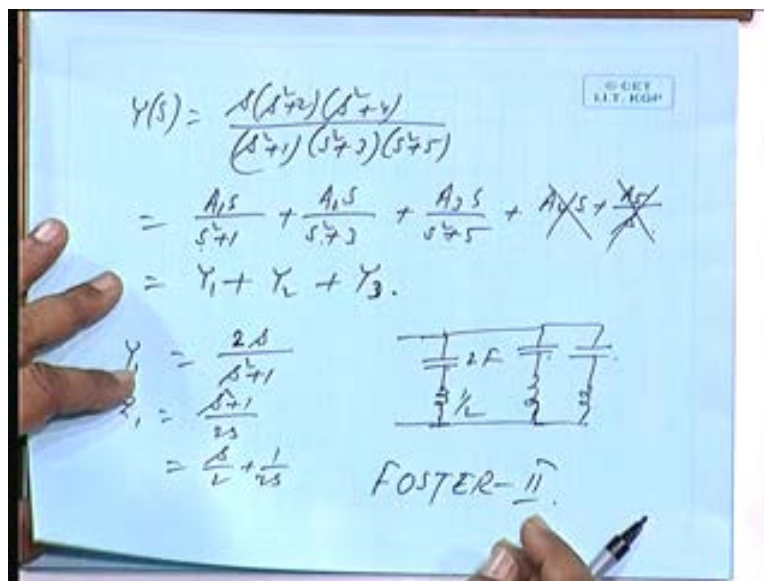 © CET
I.I.T. KGP
Y(S) = s(s²+2)(s²+4) / (s²+1)(s²+3)(s²+5)
= A₁s/s²+1 + A₁s/s²+3 + A₃s/s²+5 + A₄s + A₅/s
= Y₁ + Y₂ + Y₃.
Y₁ = 2s/s²+1
Z₁ = s²+1/2s
= s/2 + 1/2s
2F
1/2
FOSTER-II.